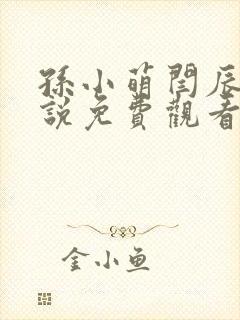 孫小萌閆辰
說免費觀看
金小鱼